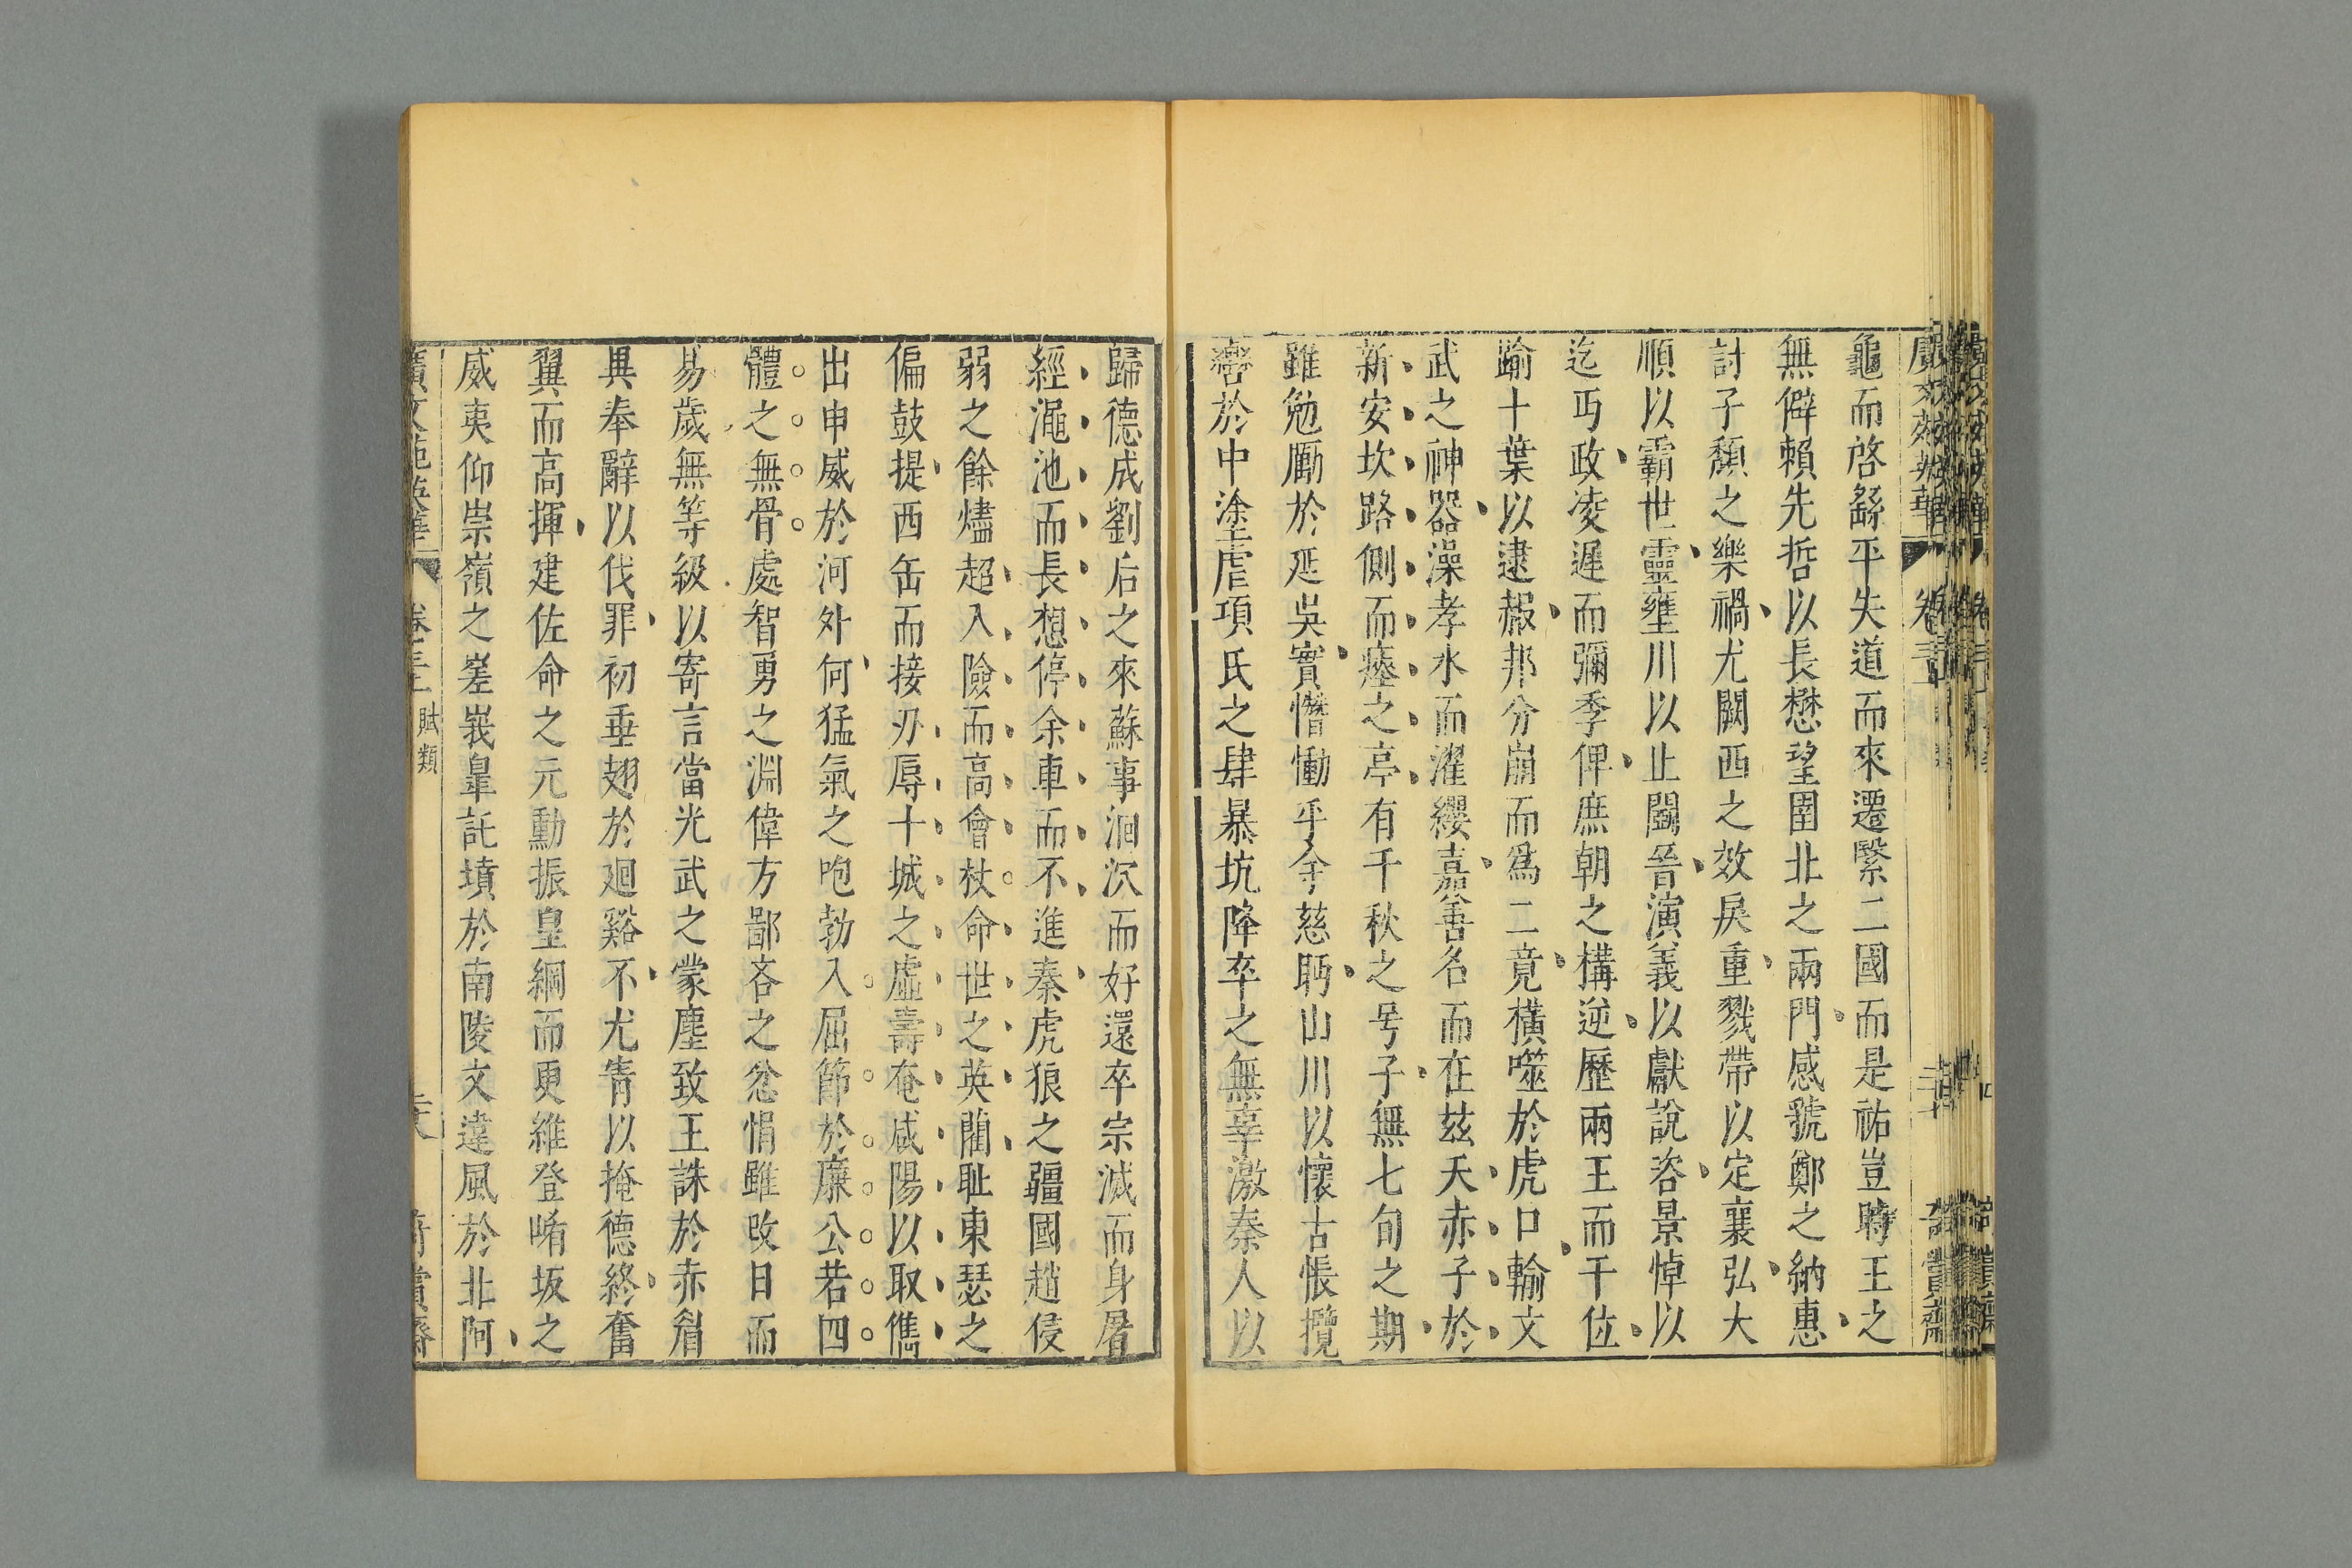 龜而啓繇平失道而來遷繄二國而是祐豈時王之
無僻賴先哲以長懋望圉北之兩門感虢鄭之納惠
討子頹之樂禍尤闕西之效戾重戮帶以定襄弘大
順以霸世靈壅川以止鬬晉演義以獻說咨景悼以
迄丏政凌遲而彌季俾庶朝之構逆歷兩王而干位
踰十葉以逮赧邦分崩而爲二竟橫噬於虎口輸文
武之神器澡孝水而濯纓嘉善名而在兹夭赤子於
新安坎路側而瘞之亭有千秋之号子無七旬之期
雖勉勵於延吳實憯慟乎余慈眄山川以懷古悵攬
轡於中塗虐項氏之肆暴坑降卒之無辜激秦人以
歸德成劉后之來蘇事洄沉而好還卒宗滅而身屠
經澠池而長想停余車而不進秦虎狼之疆國趙侵
弱之餘燼超入險而高會杖命世之英藺耻東瑟之
偏鼓提西缶而接刃辱十城之虛壽奄咸陽以取儁
出申威於河外何猛氣之咆勃入屈節於廉公若四
體之無骨處智勇之淵偉方鄙吝之忿悁雖改日而
易歲無等級以寄言當光武之蒙塵致王誅於赤眉
異奉辭以伐罪初垂翅於廻谿不尤眚以掩德終奮
翼而高揮建佐命之元勳振皇綱而更維登崤坂之
威夷仰崇嶺之嵳峩臯託墳於南陵文違風於北阿
廣文苑英華 卷二十三 賦類